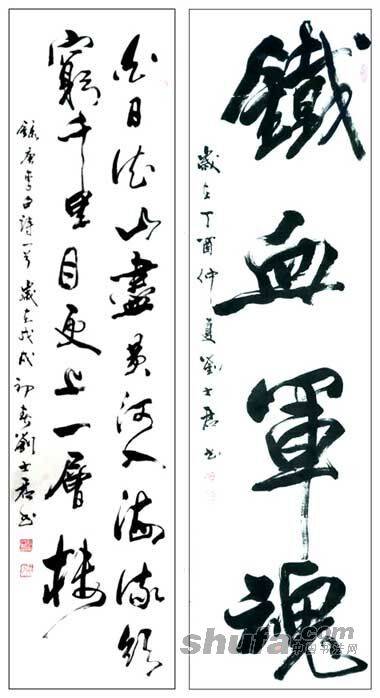 鐵血軍魂
歲在丁酉仲夏劉士君书
白日依山盡黄河入海流欲
窮千里目更上一層楼
錄唐李白诗一首歲在戊戌初春劉士君书
shufa.com
中国书法网